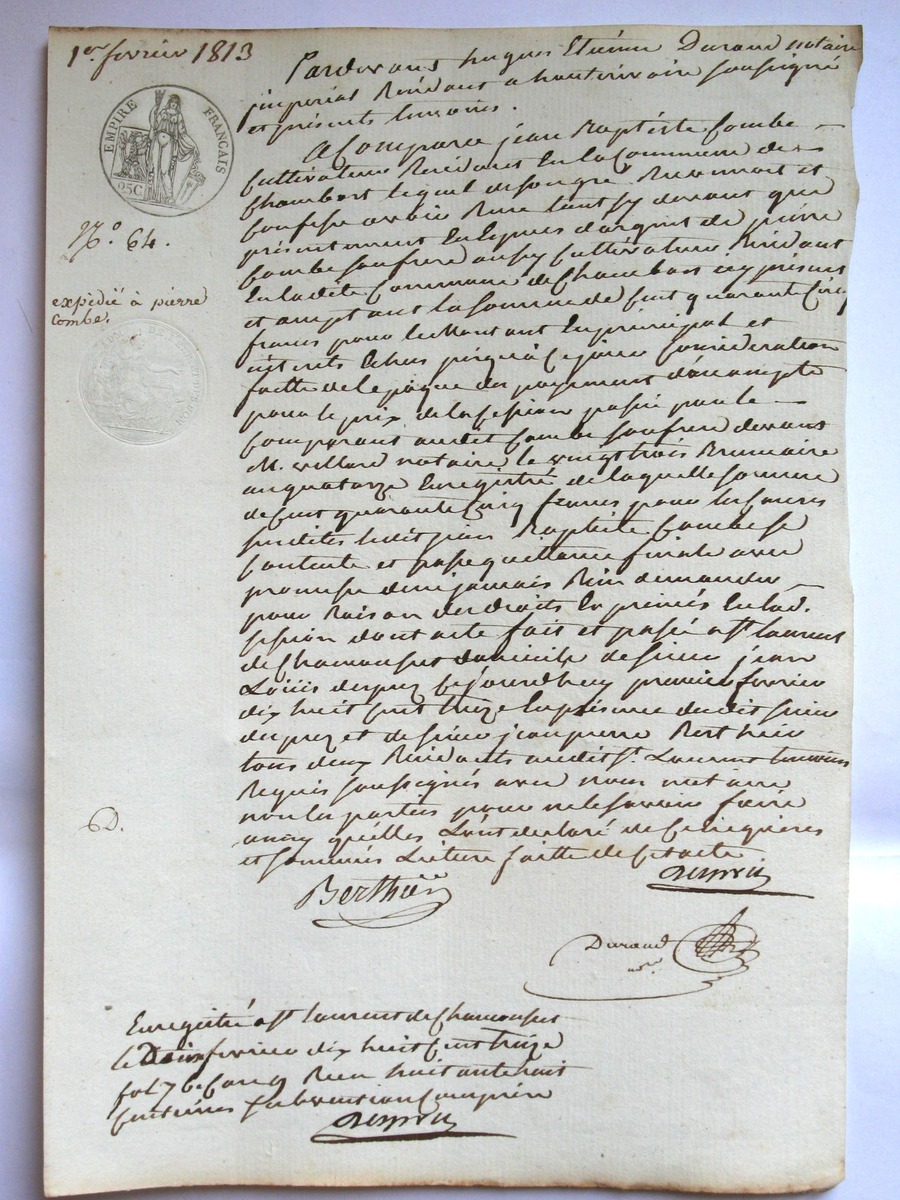 1er fevrier 1813
EMPIRE FRANÇAIS
25C
No. 64.
expédié à pierre
Combe.
Pardevans hugues Etiénne Durand notaire
jmperial Residant a hauterivoire soussigné
et présents temoins.
A Comparu jean Baptiste Combe
Cultivateur Residant En la Commune de
Chambost lequel de son gré Reconnait et
Confesse avoir Recu tant cy devant que
présentement En Espèces d'argent de pierre
Combe son frere aussy Cultivateur Residant
En la dite Commune de Chambost icy présent
et acceptant la somme de Cent quarante Cinq
francs pour le Montant En principal et
intérêts Echus jusqu'à Ce jour Consideration
faitte de l'epoque des payements d'acompte
pour le prix de la Cession passée par le
Comparant audit Combe son frere devant
M. villard notaire le vingt trois Brumaire
an quatorze Enregistré de laquelle somme
de Cent quarante Cinq francs pour les Causes
susdites ledit jean Baptiste Combe se
Contente et passe quittance finale avec
promesse de n'y jamais Rien demander
pour Raison des droits Exprimés En lad.
Cession dont acte fait et passé a St. laurent
de Chamousset domicile de sieur jean
Loüis duprez Cejourdhuy premier fevrier
dix huit Cent treize En présence dudit sieur
duprez et de sieur jean pierre Berthier
tous deux Residants audit St. Laurent temoins
Requis soussignés avec nous notaire
non les parties pour ne le savoir faire
ainsy qu'elles L'ont declaré de Ce Enquises
et sommées Lecture faitte de Cet acte
6D.
Durand
nore
Enregistré a St. laurent de Chamousset
le Deux fevrier dix huit Cent treize
fol. 7 Recu huitante huit
Centimes subvention Comprise